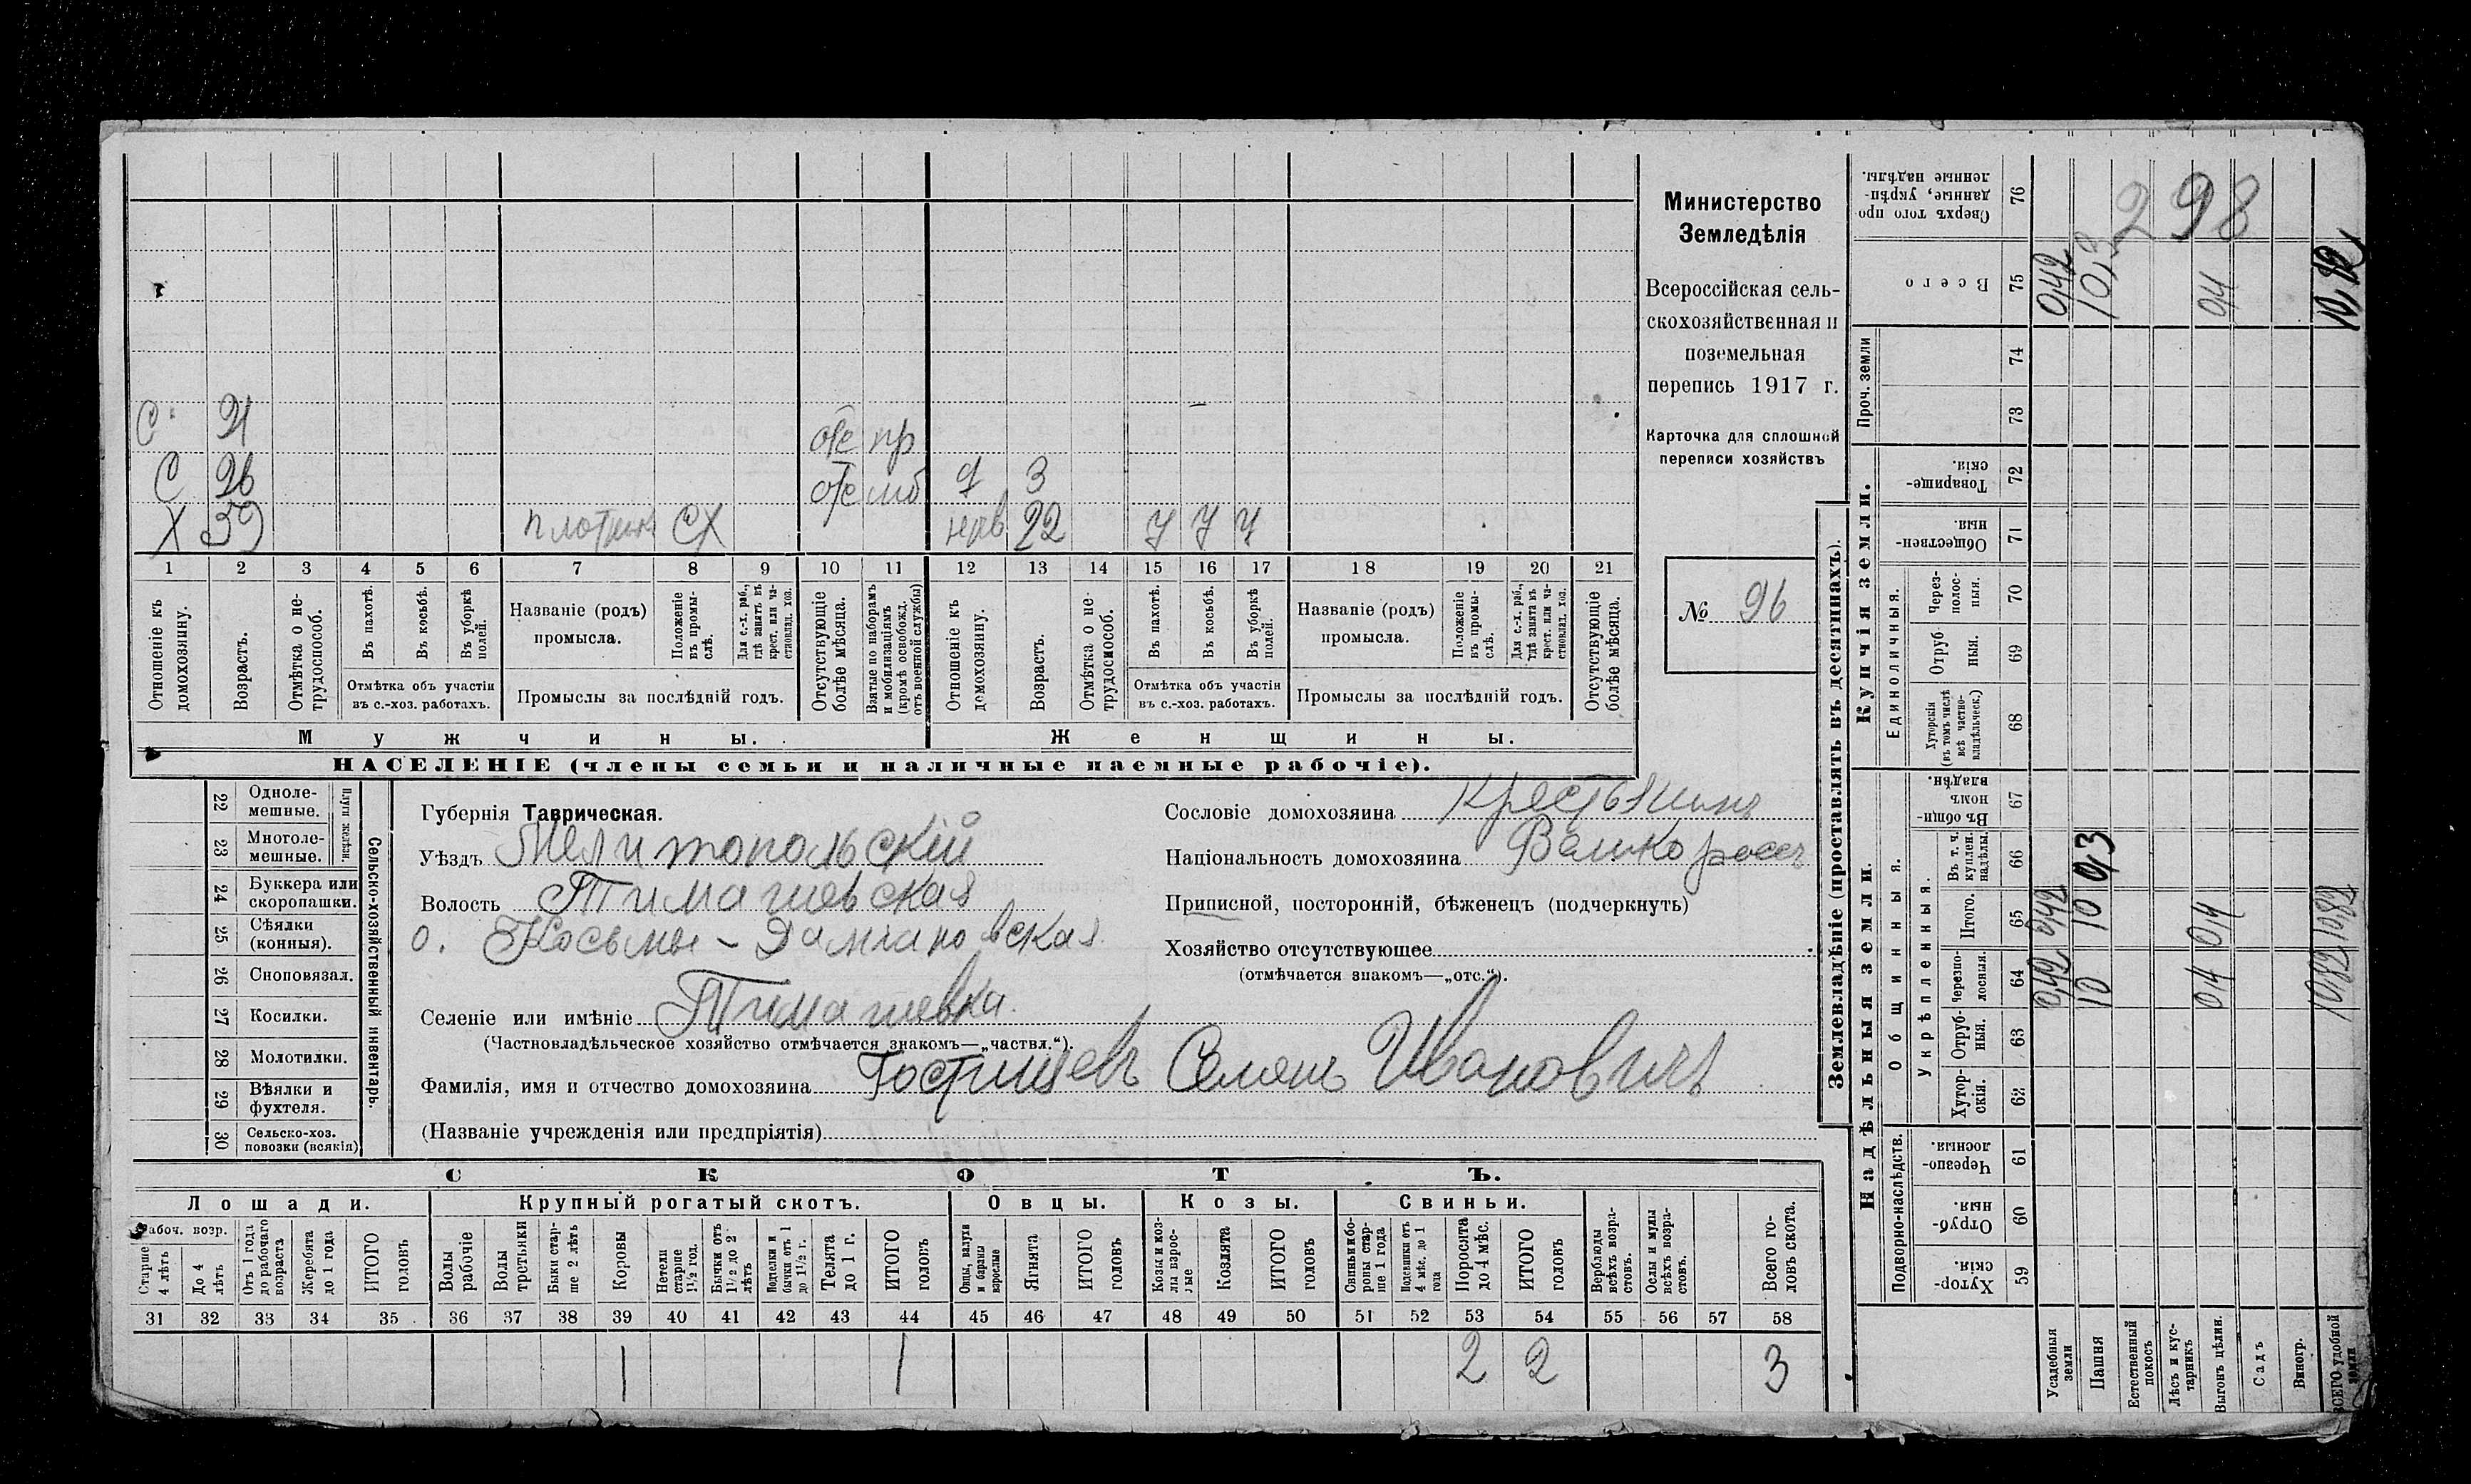 С 21 отс пр
С 26 отс мб д 3
Х 59 плотник СХ 22 У У У
1 2 3 4 5 6 7 8 9 10 11 12 13 14 15 16 17 18 19 20 21
Отношеніе къ домохозяину.
Возрастъ.
Отмѣтка о не-трудоспособ.
Въ пахотѣ.
Въ косьбѣ.
Въ уборкѣ полей.
Отмѣтка объ участіи
въ с.-хоз. работахъ.
Названіе (родъ)
промысла.
Положеніе въ промы-слѣ.
Для с.-х. раб., гдѣ занятъ въ крест. или ча-стновлад. хоз.
Промыслы за послѣдній годъ.
Отсутствующіе болѣе мѣсяца.
Взятые по наборамъ и мобилизаціямъ (кромѣ освобожд. отъ военной службы)
Отношеніе къ домохозяину.
Возрастъ.
Отмѣтка о не-трудоспособ.
Въ пахотѣ.
Въ косьбѣ.
Въ уборкѣ полей.
Отмѣтка объ участіи
въ с.-хоз. работахъ.
Названіе (родъ)
промысла.
Положеніе въ промы-слѣ.
Для с.-х. раб., гдѣ занята въ крест. или ча-стновлад. хоз.
Промыслы за послѣдній годъ.
Отсутствующіе болѣе мѣсяца.
Мужчины. Женщины.
НАСЕЛЕНІЕ (члены семьи и наличные наемные рабочіе).
Министерство
Земледѣлія
Всероссійская сель-
скохозяйственная и
поземельная
перепись 1917 г.
Карточка для сплошной
переписи хозяйствъ
№ 96
22 Одноле-мешные.
23 Многоле-мешные.
Плуги желѣзн.
24 Буккера или скоропашки.
25 Сѣялки (конныя).
26 Сноповязал.
27 Косилки.
28 Молотилки.
29 Вѣялки и фухтеля.
30 Сельско-хоз. повозки (всякія)
Сельско-хозяйственный инвентарь.
Губернія Таврическая.
Уѣздъ Мелитопольскій
Волость Тимашевская
о. Косьмы-Даміановская
Селеніе или имѣніе Тимашевка.
(Частновладѣльческое хозяйство отмѣчается знакомъ—„частвл.“).
Фамилія, имя и отчество домохозяина Гостищевъ Семенъ Ивановичъ
(Названіе учрежденія или предпріятія)
Сословіе домохозяина Крестьянинъ
Національность домохозяина Великороссъ
Приписной, посторонній, бѣженецъ (подчеркнуть)
Хозяйство отсутствующее
(отмѣчается знакомъ—„отс.“).
СКОТЪ.
Лошади. Крупный рогатый скотъ. Овцы. Козы. Свиньи.
Рабоч. возр.
Старше 4 лѣтъ
До 4 лѣтъ
Отъ 1 года до рабочаго возраста
Жеребята до 1 года
ИТОГО головъ
Волы рабочіе
Волы третьяки
Быки стар-ше 2 лѣтъ
Коровы
Нетели старше 1½ год.
Бычки отъ 1½ до 2 лѣтъ
Подтелки и бычки отъ 1 до 1½ г.
Телята до 1 г.
ИТОГО головъ
Овцы, валухи и бараны взрослые
Ягнята
ИТОГО головъ
Козы и коз-лы взрос-лые
Козлята
ИТОГО головъ
Свиньи и бо-ровы стар-ше 1 года
Подсвинки отъ 4 мѣс. до 1 года
Поросята до 4 мѣс.
ИТОГО головъ
Верблюды всѣхъ возра-стовъ.
Ослы и мулы всѣхъ возра-стовъ.
Всего го-ловъ скота.
31 32 33 34 35 36 37 38 39 40 41 42 43 44 45 46 47 48 49 50 51 52 53 54 55 56 57 58
1 1 2 2 3
Землевладѣніе (проставлять въ десятинахъ).
Надѣльныя земли. Купчія земли. Проч. земли
Подворно-наслѣдств. Общинныя. Укрѣпленныя. Единоличныя.
Хутор-скія. 59
Отруб-ныя. 60
Черезпо-лосныя. 61
Хутор-скія. 62
Отруб-ныя. 63
Черезпо-лосныя. 64
Итого. 65
Въ т. ч. куплен. надѣлы. 66
Въ общи-номъ владѣн. 67
Хуторскія (въ томъ числѣ всѣ частно-владѣльческ.) 68
Отруб-ныя. 69
Через-полос-ныя. 70
Обществен-ныя. 71
Товарище-скія. 72
73
74
Всего 75
Сверхъ того про-данные, укрѣп-ленные надѣлы. 76
298
Усадебныя земли 0,42 0,42 0,42
Пашня 10 10 0,3 10,3
Естественный покосъ
Лѣсъ и кус-тарникъ
Выгонъ цѣлин. 0,4 0,4 0,4
Садъ
Виногр.
ВСЕГО удобной земли 10,82 10,82